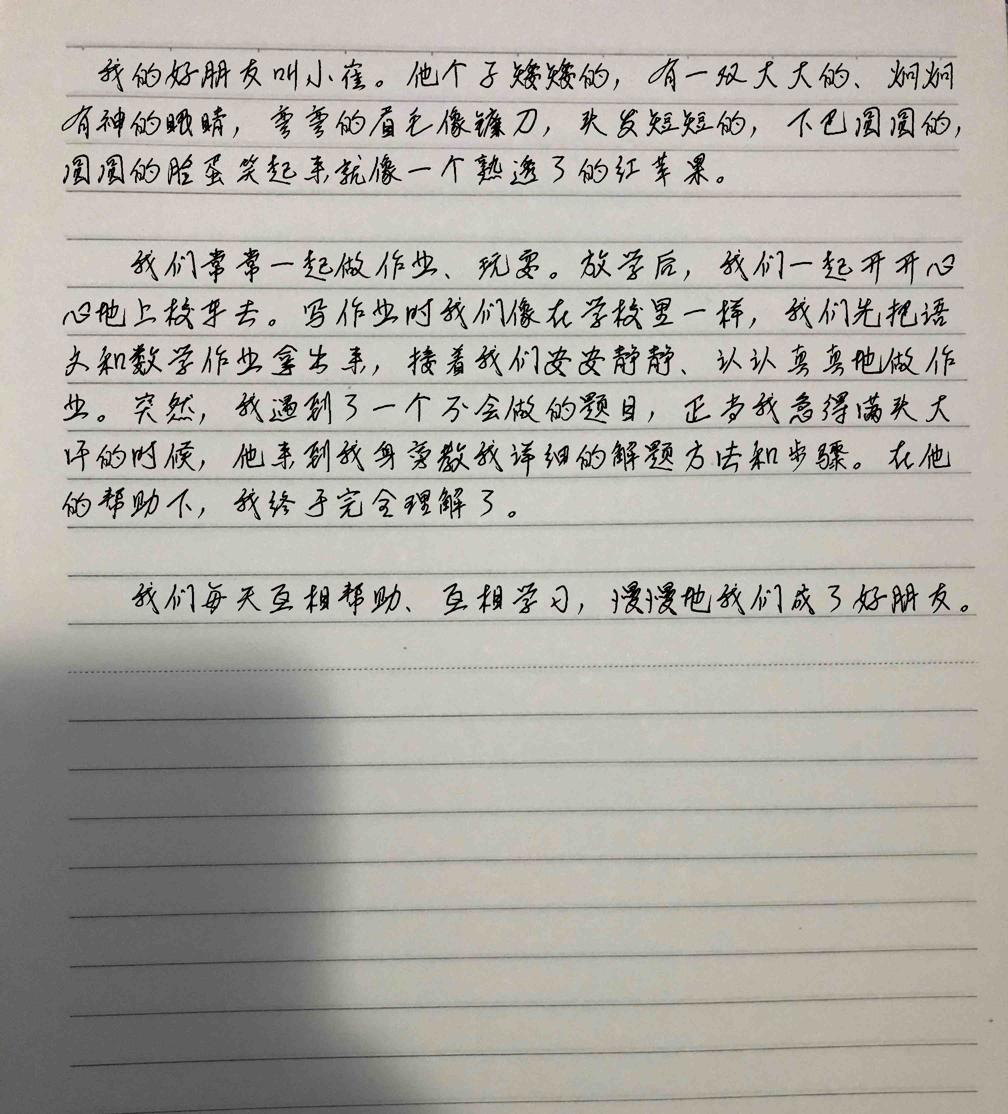 我的好朋友叫小崔。他个子矮矮的，有一双大大的、炯炯
有神的眼睛，弯弯的眉毛像镰刀，头发短短的，下巴圆圆的，
圆圆的脸蛋笑起来就像一个熟透了的红苹果。
我们常常一起做作业、玩耍。放学后，我们一起开开心
心地上校车去。写作业时我们像在学校里一样，我们先把语
文和数学作业拿出来，接着我们安安静静、认认真真地做作
业。突然，我遇到了一个不会做的题目，正当我急得满头大
汗的时候，他来到我身旁教我详细的解题方法和步骤。在他
的帮助下，我终于完全理解了。
我们每天互相帮助、互相学习，慢慢地我们成了好朋友。